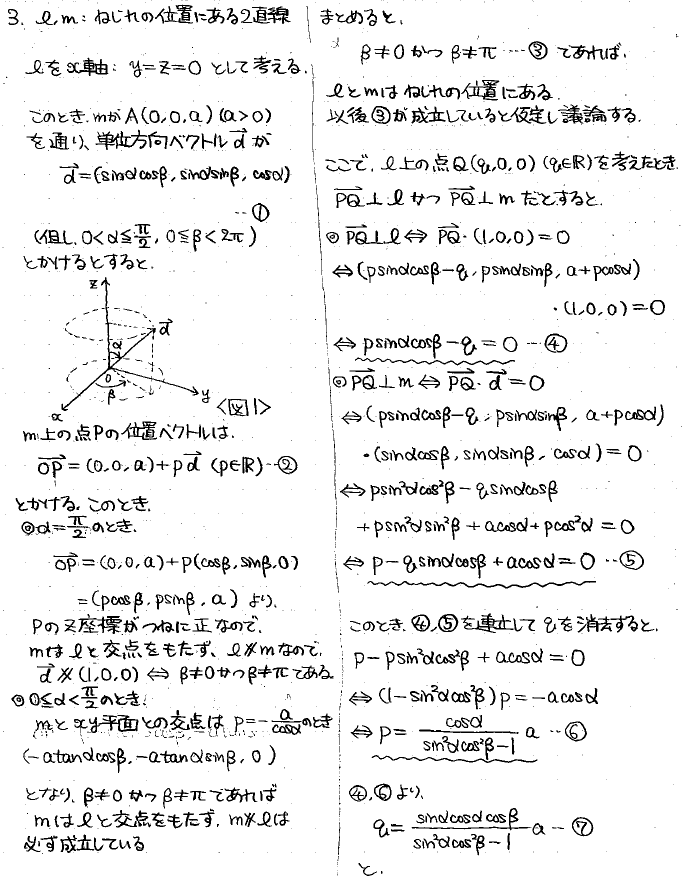 3. l,m:ねじれの位置にある2直線
lをx軸: y=z=0 として考える.
このとき.mがA(0,0,a)(a>0)
を通り、単位方向ベクトルd→が
d→=(sinαcosβ, sinαsinβ, cosα)
…①
(但し.0<α≦π/2, 0≦β<2π)
とかけるとすると.
z
d→
α
0
β
y
x
<図1>
m上の点Pの位置ベクトルは.
OP→=(0,0,a)+pd→ (p∈ℝ)…②
とかける.このとき.
◎α=π/2のとき.
OP→=(0,0,a)+p(cosβ,sinβ,0)
=(pcosβ,psinβ,a) より.
Pのz座標がつねに正なので.
mはlと交点をもたず、l∦mなので.
d→∦(1,0,0)⇔β≠0かつβ≠πである
◎0≦α<π/2のとき.
mとxy平面との交点は p=-a/cosαのとき
(-atanαcosβ,-atanαsinβ,0)
となり.β≠0かつβ≠πであれば
mはlと交点をもたず.m∦lは
必ず成立している
まとめると.
β≠0かつβ≠π…③ であれば.
lとmはねじれの位置にある.
以後③が成立していると仮定し議論する.
ここで.l上の点Q(q,0,0)(q∈ℝ)を考えたとき.
PQ→⊥lかつPQ→⊥mだとすると.
◎PQ→⊥l⇔PQ→・(1,0,0)=0
⇔(psinαcosβ-q,psinαsinβ,a+pcosα)
・(1,0,0)=0
⇔psinαcosβ-q=0…④
◎PQ→⊥m⇔PQ→・d→=0
⇔(psinαcosβ-q,psinαsinβ,a+pcosα)
・(sinαcosβ,sinαsinβ,cosα)=0
⇔psin²αcos²β-qsinαcosβ
+psin²αsin²β+acosα+pcos²α=0
⇔p-qsinαcosβ+acosα=0…⑤
このとき.④,⑤を連立してqを消去すると.
p-psin²αcos²β+acosα=0
⇔(1-sin²αcos²β)p=-acosα
⇔p=cosα/(sin²αcos²β-1) a…⑥
④,⑥より.
q=sinαcosαcosβ/(sin²αcos²β-1) a…⑦
と.